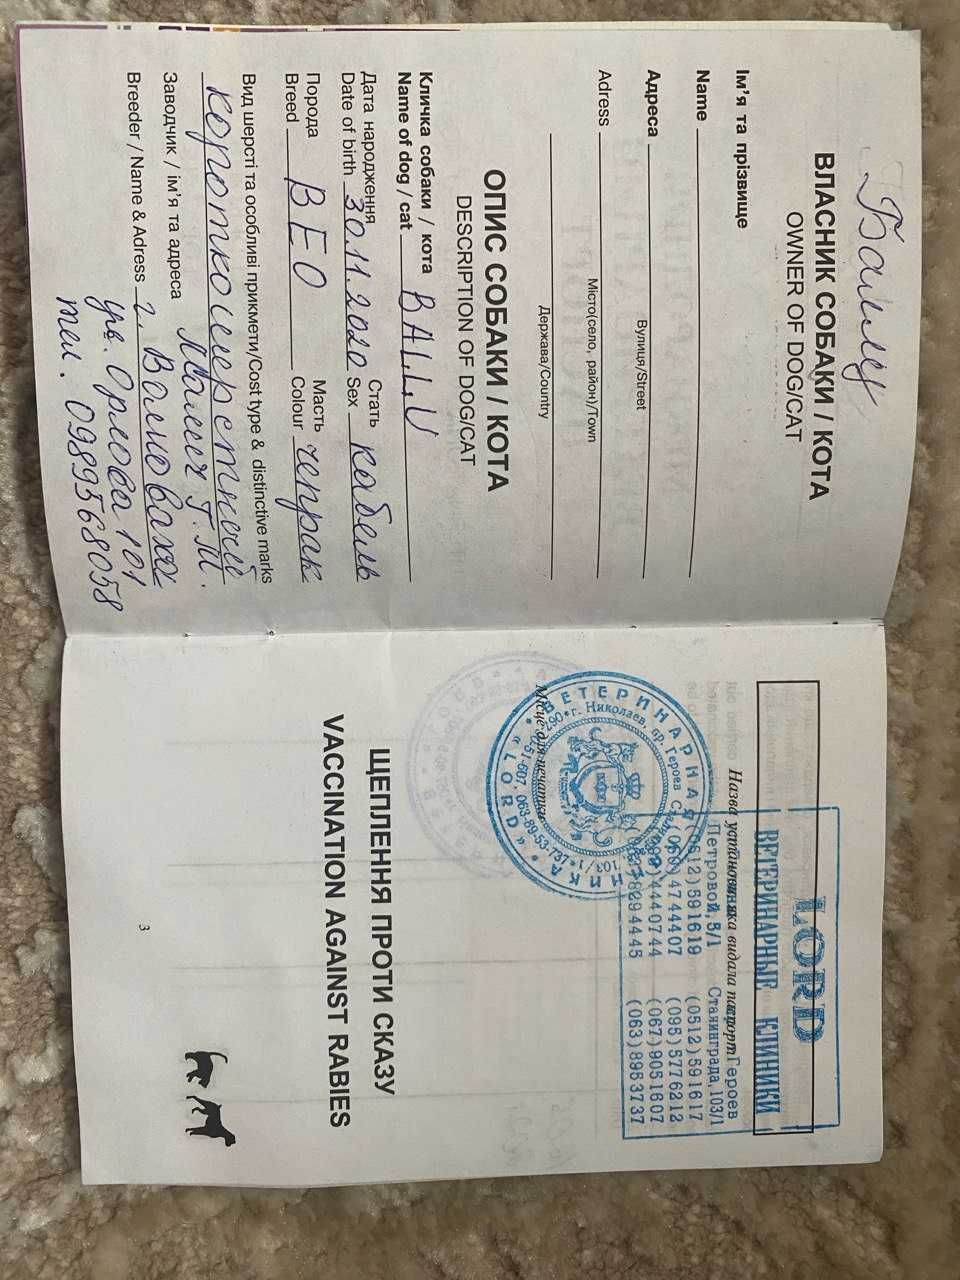 Баллу
ВЛАСНИК СОБАКИ / КОТА
OWNER OF DOG/CAT
Ім'я та прізвище
Name
Адреса
Вулиця/Street
Adress
Місто(село, район)/Town
Держава/Country
ОПИС СОБАКИ / КОТА
DESCRIPTION OF DOG/CAT
Кличка собаки / кота
Name of dog / cat BALLU
Дата народження Стать
Date of birth 30.11.2020 Sex кабель
Порода Масть
Breed ВЕО Colour чепрак
Вид шерсті та особливі прикмети/Cost type & distinctive marks
короткошерстный
Заводчик / ім'я та адреса Г.М.
Breeder / Name & Adress г. Волноваха
Орлова 101
тел. 0989568058
LORD
ВЕТЕРИНАРНЫЕ КЛИНИКИ
Назва установи, яка видала паспорт
Петровой, 5/1 Героев Сталинграда, 103/1
(0512) 591619 (0512) 591617
(050) 4744407 (095) 5776212
444 07 44 (067) 9051607
829 44 45 (063) 8953737
ВЕТЕРИНАРНАЯ КЛИНИКА «LORD»
г. Николаев, пр. Героев
Місце для печатки
ЩЕПЛЕННЯ ПРОТИ СКАЗУ
VACCINATION AGAINST RABIES
3